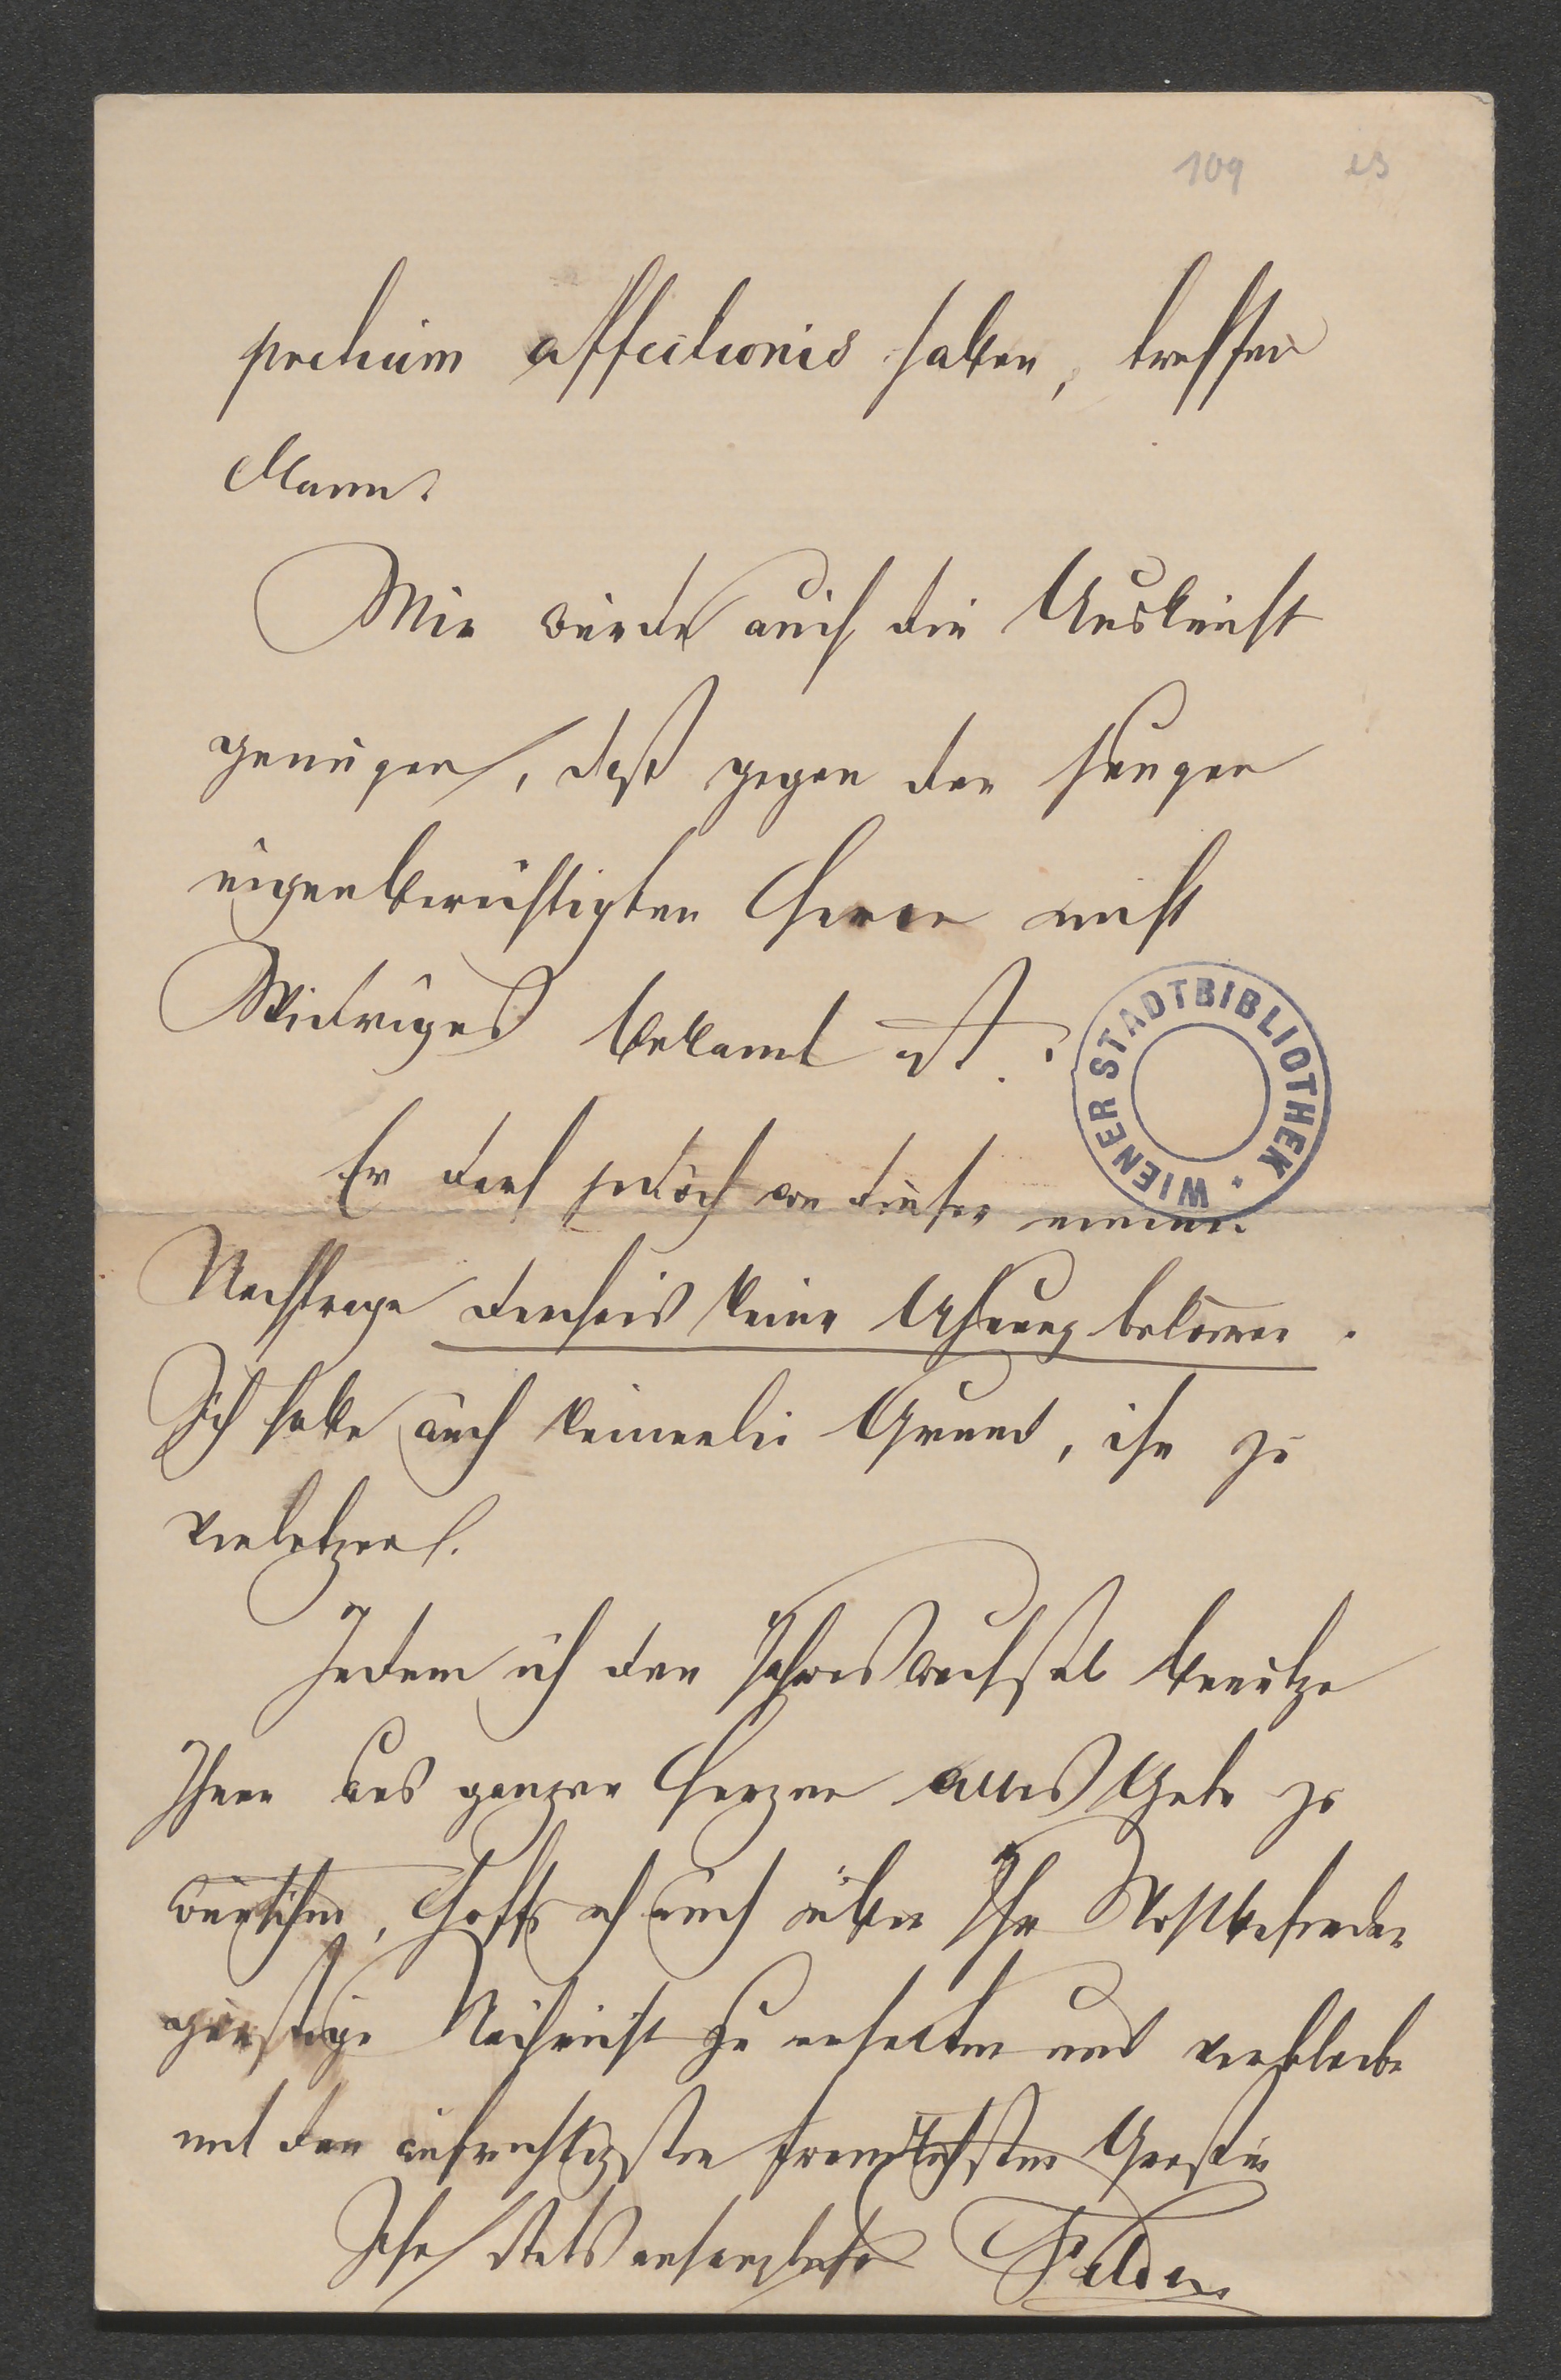 109
pretium affectionis haben, treffen
kann.
Mir würde auch die Auskunft
genügen, daß gegen den jungen
eigenberechtigten Herrn nicht
Widriges bekannt ist.
WIENER STADTBIBLIOTHEK
Er darf jedoch von dieser meiner
Nachfrage durchaus keine Ahnung bekommen.
Ich habe auch keinerlei Grund, ihn zu
verletzen.
Indem ich den Jahreswechsel benütze
Ihnen aus ganzem Herzen alles Gute zu
wünschen, hoffe ich auch über Ihr Wohlbefinden
günstige Nachricht zu erhalten und verbleibe
mit den aufrichtigsten freundlichsten Grüßen
Ihr stets anhänglicher